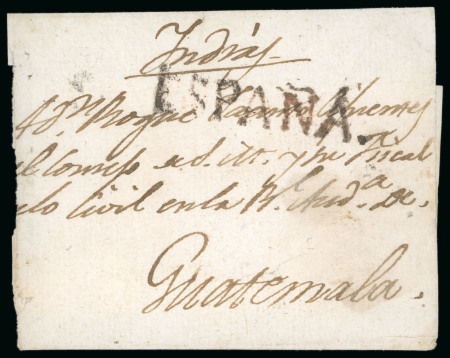 Indias
ESPAÑA.
A Dn Roque
del Consejo de S. M. y su Fiscal
de lo Civil en la Rl. Auda. de
Guatemala.